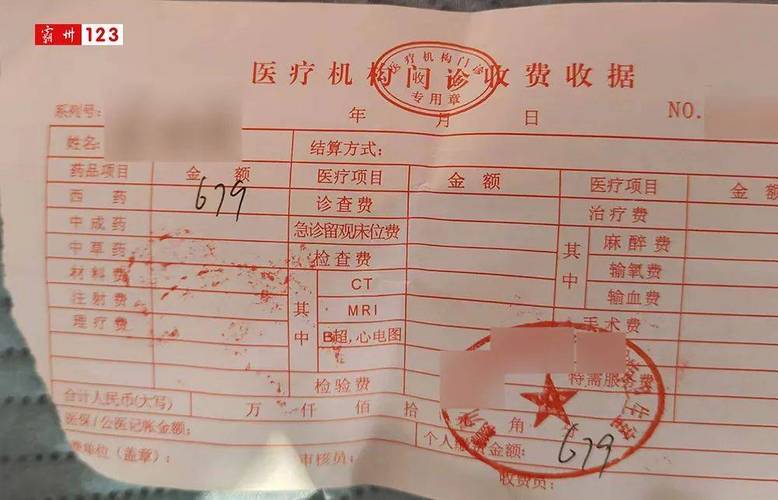 霸州123
医疗机构门诊收费收据
医疗机构门诊
收
专用章
系列号: 年 月 日 NO.
姓名: 结算方式:
药品项目 金 额 医疗项目 金 额 医疗项目 金 额
西 药 679 诊查费 治疗费
中成药 急诊留观床位费 其中 麻醉费
中草药 检查费 输氧费
材料费 其中 CT 输血费
注射费 MRI 手术费
理疗费 B超,心电图
检验费 特需服务费
合计人民币(大写) 万 仟 佰 拾 角
医保/公医记账金额: 个人 金额: 679
单位(盖章): 审核员: 收费员: